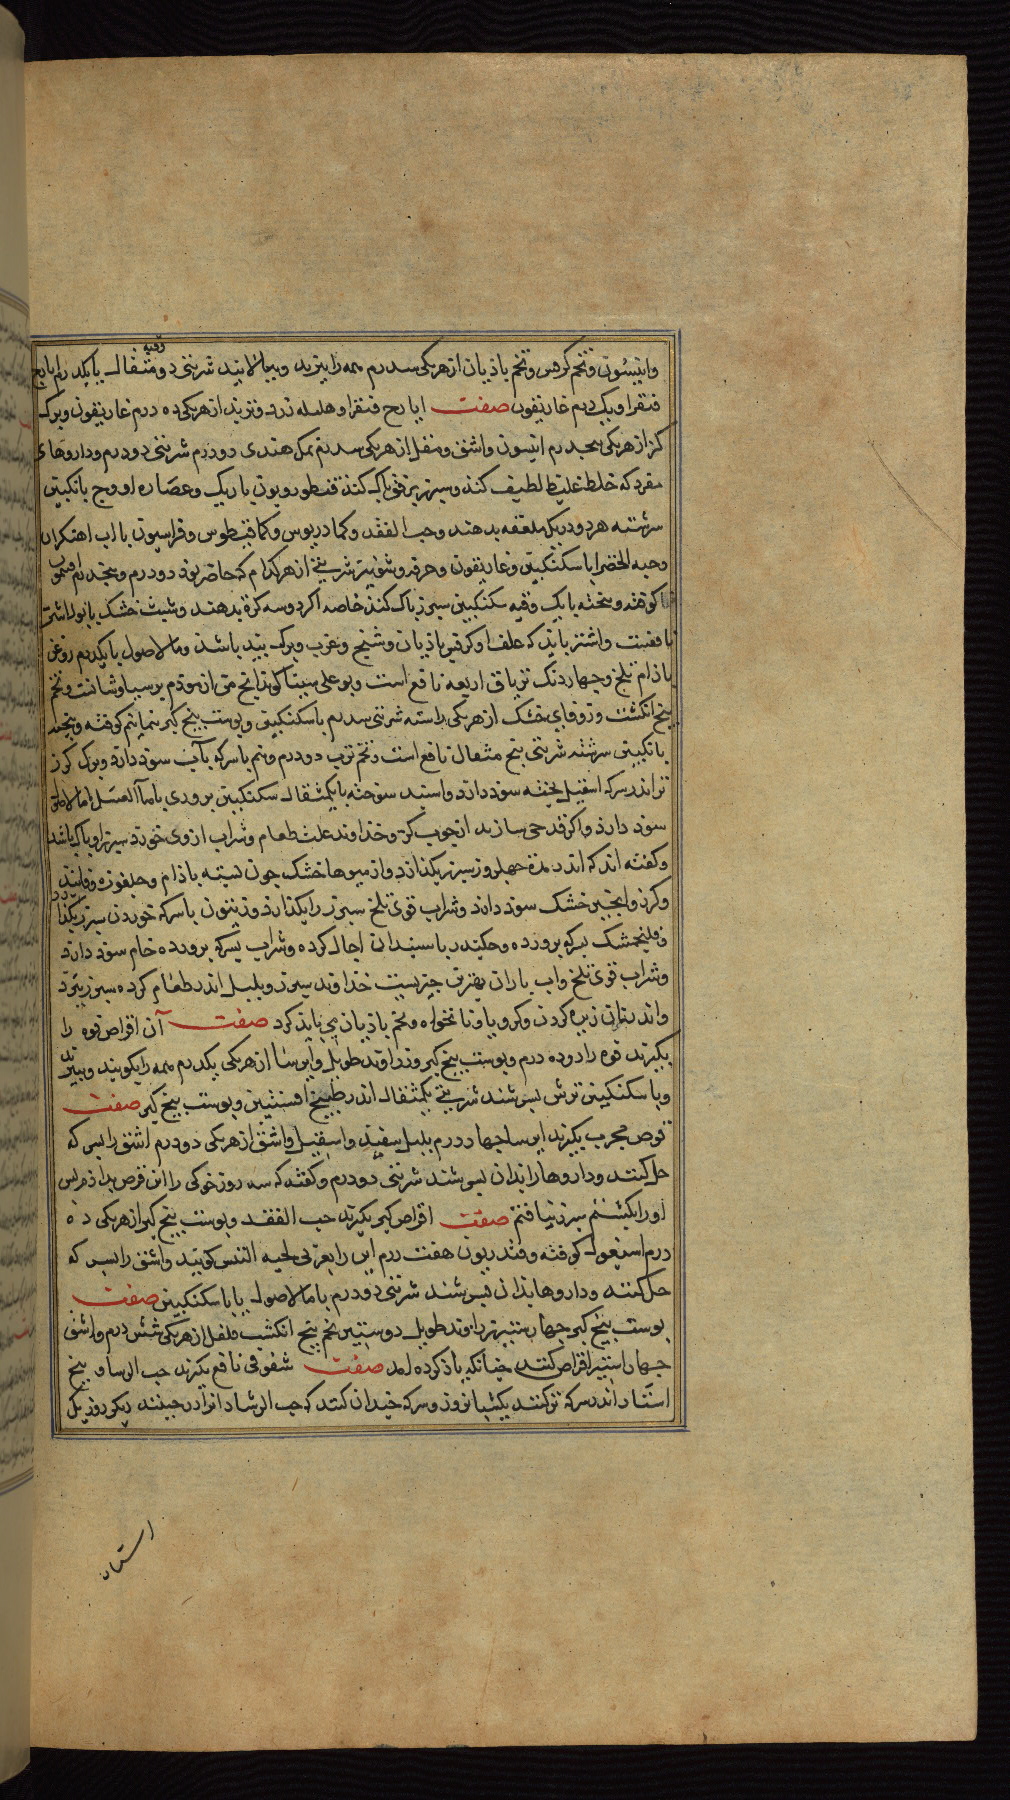 وانیسون و تخم کرفس و تخم باذیان از هریکی سه درم همه را بپزند و بپالایند شربتی دو وقیه مثقال با یکدرم ایارج
فیقرا و یک درم غاریقون صفت ایارج فیقرا و هلیله زرد و تربد از هریکی ده درم غاریقون و برک
کرز از هریکی پنجدرم انیسون و اشق و مقل از هریکی سه درم نمک هندی دو درم شربتی دو درم و داروهای
مفرد که خلط غلیظ لطیف کند و سپرز بزرک پاک کند قنطوریون باریک و عصاره او وج بانکبین
سرشته هر دو دریک ملعقه بدهند و حب الفقد و کمادریوس و کمافیطوس و فراسیون با آب اهنکران
وحبه الخضرا با سکنکبین و غاریقون و حرف و شونیز شربتی از هرکدام که حاضر بود دو درم و پنجدرم
کوفته و پخته با یک وقیه سکنکبین سپرز پاک کند خاصه اکر دو سه کرة بدهند و شبت خشک
واشتر باید که علف او کرفس و باذیان و شیح و غرب و برک بید باشد و ماء الاصول با یکدرم روغن
باذام تلخ و چهار دنک تریاق اربعه نافع است و بوعلی سینا کوید پنج من از مودم پرسیاوشانست و تخم
پنج انکشت و زوفای خشک از هریکی راسته شربتی سه درم با سکنکبین و پوست بیخ کبر کوفته و بیخته
بانکبین سرشته شربتی پنج مثقال نافع است و تخم ترب دو درم و نیم با سرکه بآب سود دارد و برک کرز
تر اندر سرکه اسقیل پخته سود دارد و اسپند سوخته با یکمثقال سکنکبین بزوری با ماء العسل
سود دارد و اکر قدحی سازند از چوب کز و خداوند علت طعام و شراب ازوی خورد سپرز او پاک باشد
و کفته اند که اندر مدة چهل روز سپرز بکدازد و از میوها خشک چون پسته باذام و جلغوزه
و کرد و انجیر خشک سود دارد و شراب قوی تلخ سپرز را بکدازد و زیتون با سرکه خوردن سپرز بکدازد
و فلنجمشک بسرکه پرورده و جکندر با سپندان اجال کرده و شراب بسرکه پرورده خام سود دارد
و شراب قوی تلخ و آب باران بهترین چیزیست خداوند سپرز و پلپل اندر طعام کرده سپرز ببرد
واندر نان زیره کردن و کرویا و نانخواه و تخم باذیان می باید کرد صفت آن اقراص فوه را
بکیرند فوه را دوده درم و پوست بیخ کبر و زراوند طویل و ایرسا از هریکی یکدرم همه را بکوبند و ببیزند
و با سکنکبین ترش بسرشند شربتی یکمثقال اندر طبیخ افسنتین و پوست بیخ کبر صفت
قرص مجرب بکیرند ایرسا چهار درم پلپل سفید و اسقیل و اشق از هریکی دو درم اشق را بسرکه
حل کنند و داروها را بدان بسرشند شربتی دو درم و کفته که سه روز خوکی را این قرص بداذم پس
او را بکشتم سپرز نیافتم صفت اقراص کبر بکیرند حب الفقد و پوست بیخ کبر از هریکی ده
درم اسقیل کوفته و قندریون هفت درم این را بعربی لحیه التیس کویند و اشق را بسرکه
حل کنند و داروها بدان بسرشند شربتی دو درم با ماء الاصول یا با سکنکبین صفت
پوست بیخ کبر چهار ستیر زراوند طویل دو ستیر تخم پنج انکشت فلفل از هریکی شش درم و اشق
چهار استیر اقراص کنند چنانکه یاذ کرده امد صفت سفوفی نافع بکیرند حب الرشاد پنج
استار اندر سرکه تر کنند یکشبانروز و سرکه چندان کنند که حب الرشاد انرا در چیند دیکر روز یکی
استار